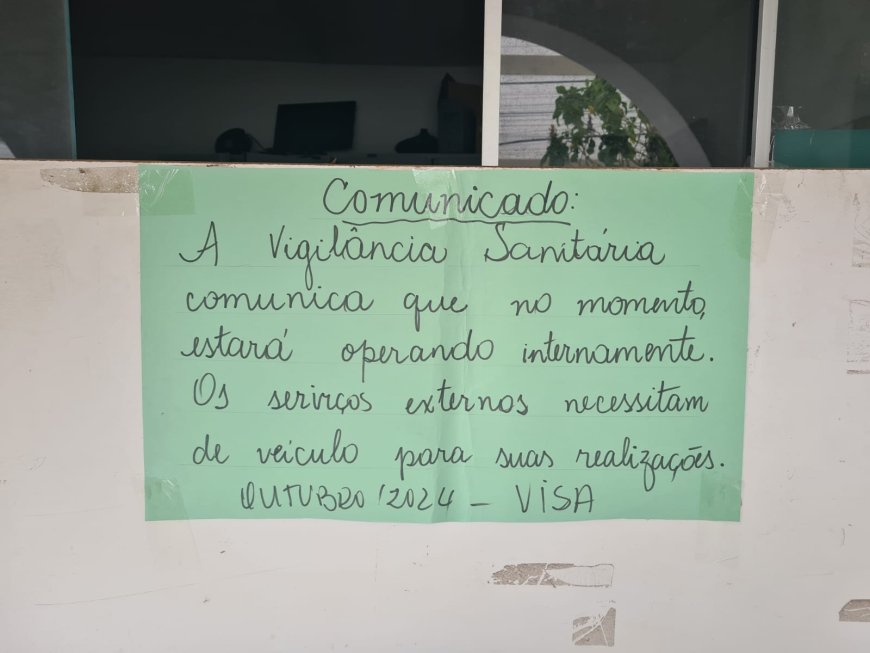 Comunicado:
A Vigilância Sanitária
comunica que no momento,
estará operando internamente.
Os serviços externos necessitam
de veículo para suas realizações.
OUTUBRO/2024 - VISA